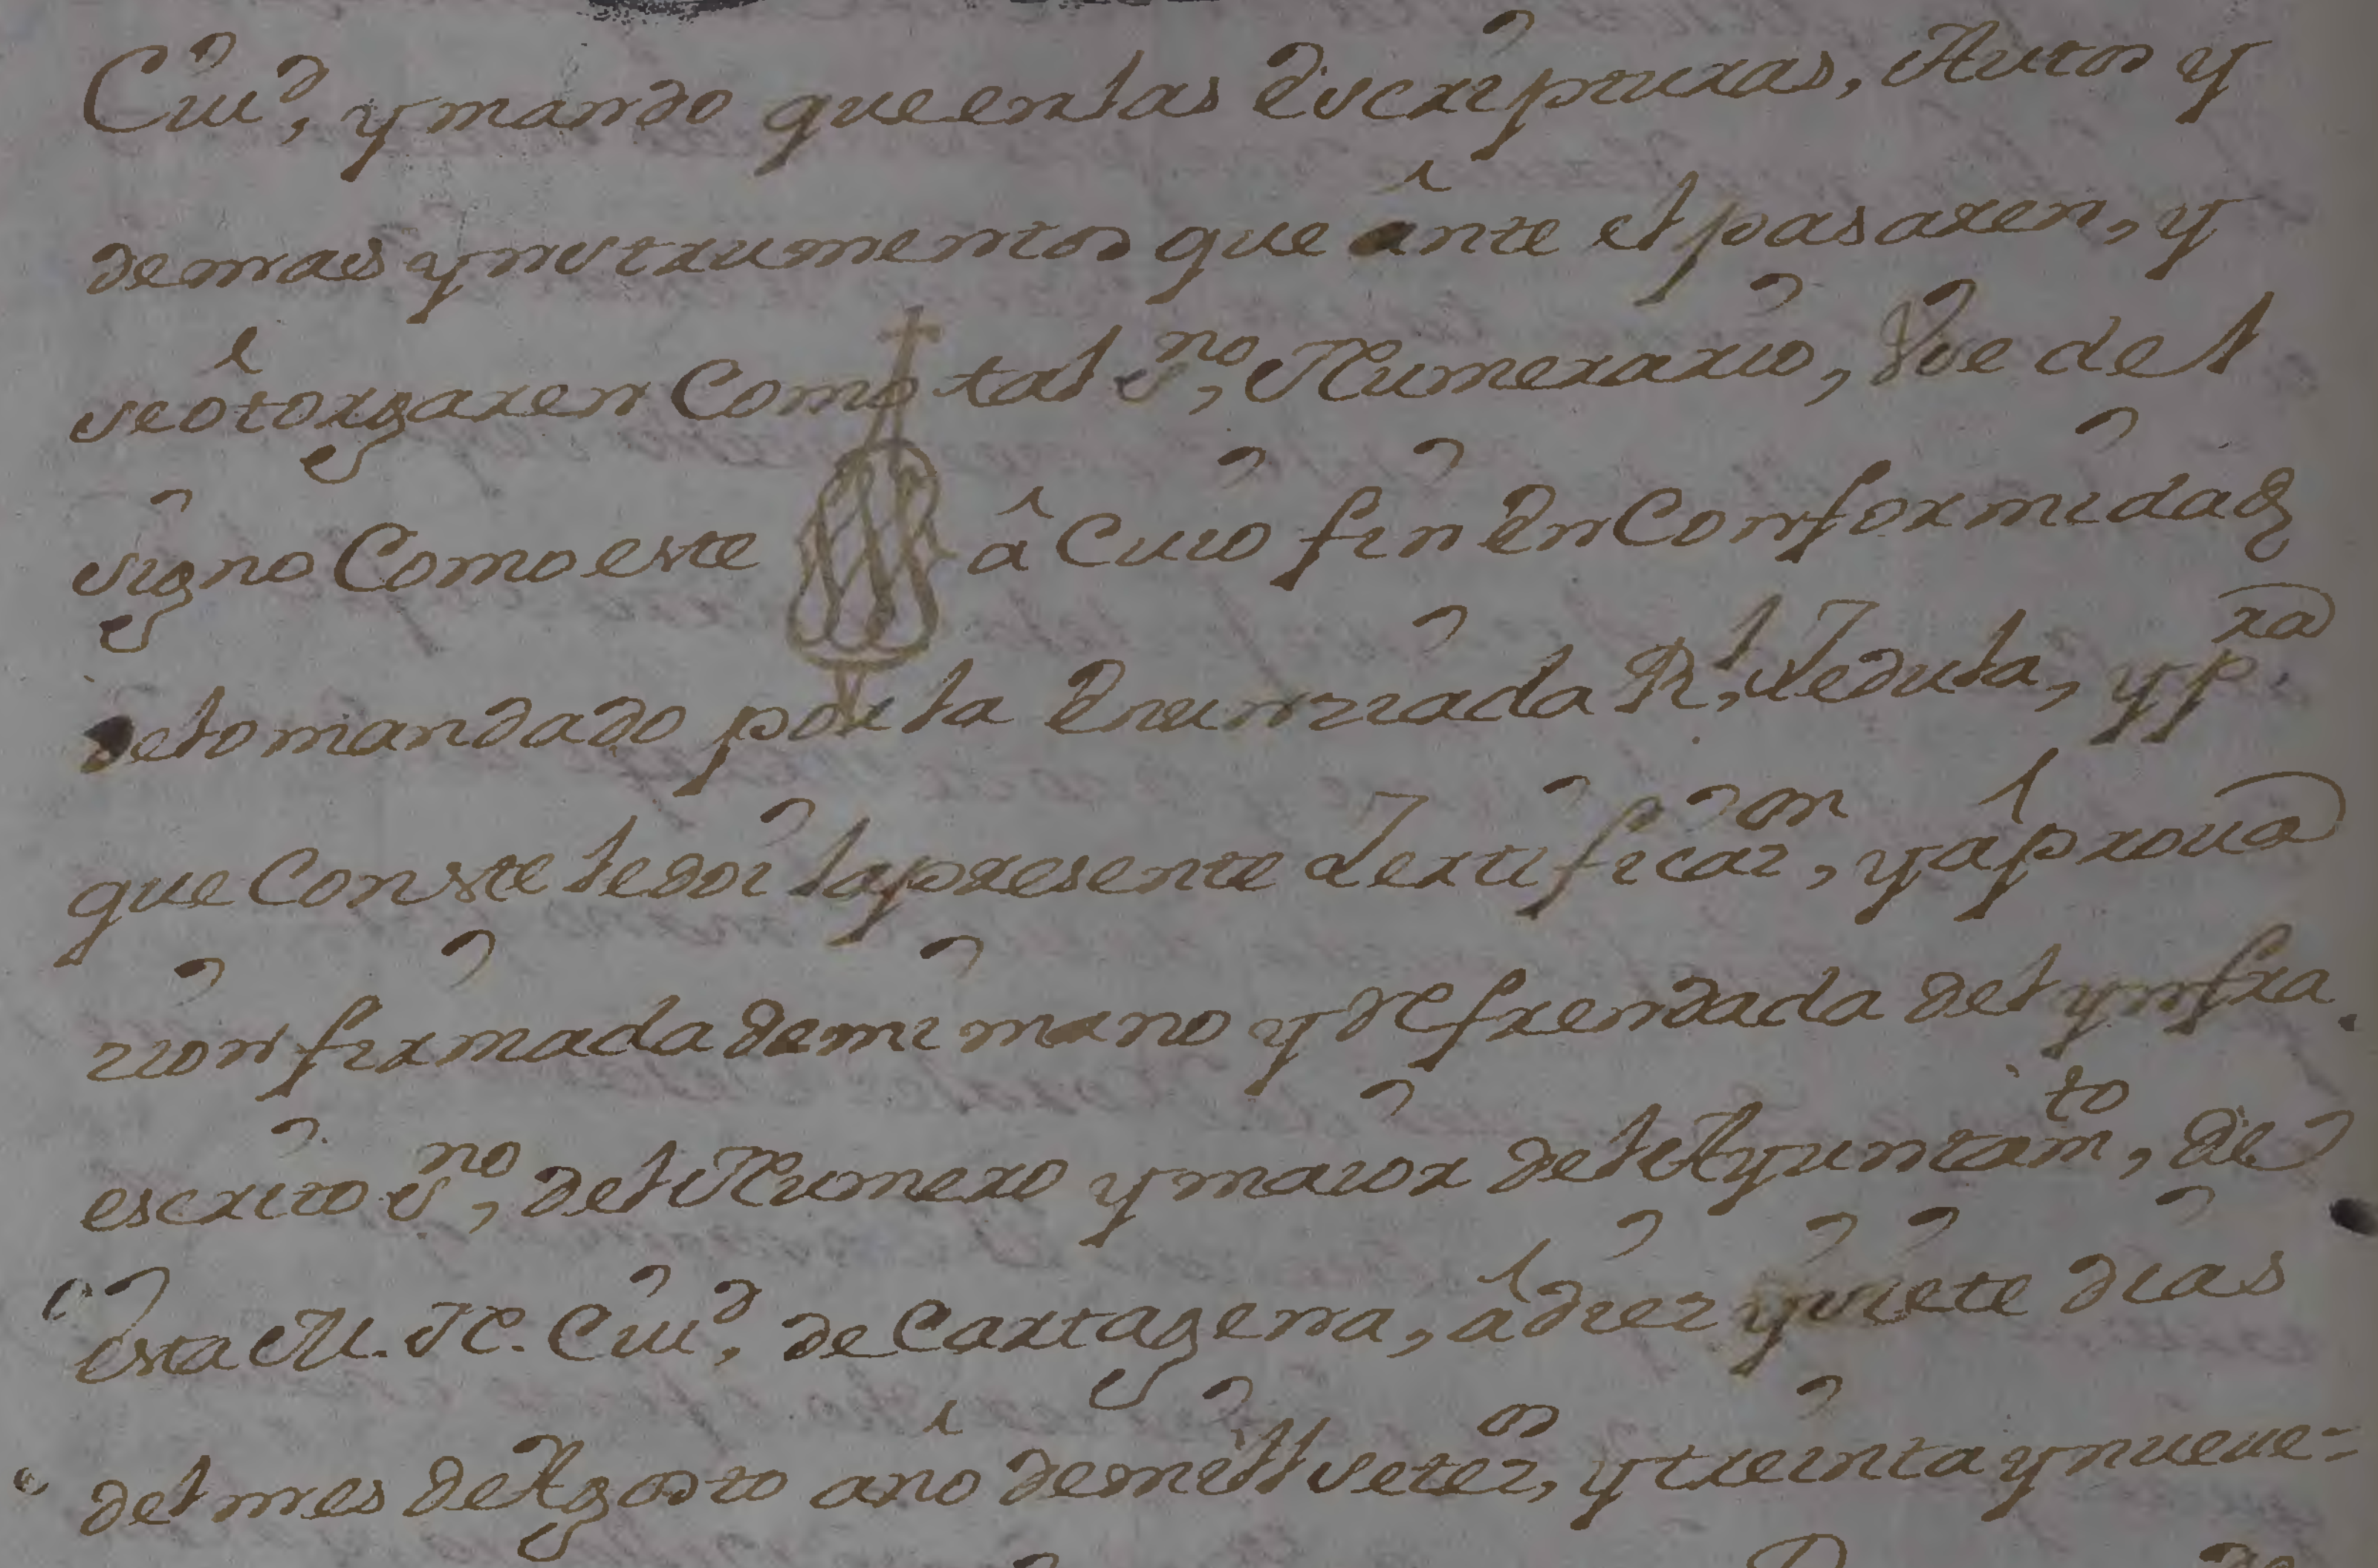 Ciuᵈ, y mando que en las Escripturas, Autos y
demas ynstrumentos que ânte el pasaren, y
se ôtorgaren Como tal sⁿᵒ, Numerario, Vse del
signo Como este â Cuio fin En Conformidad
de lo mandado por la Enunziada Rˡ, Zedula, y pʳᵃ
que Conste le doi la presente Zertificazᵒⁿ, y âproua
zion firmada de mi mano y Refrendada del ynfra
escrito sⁿᵒ, del Numero y maior del Ayuntamᵗᵒ, de
esta M. N. Ciuᵈ, de Cartagena, â diez y siete dias
del mes de Agosto año de mill setezᵒˢ, y treinta y nueue=